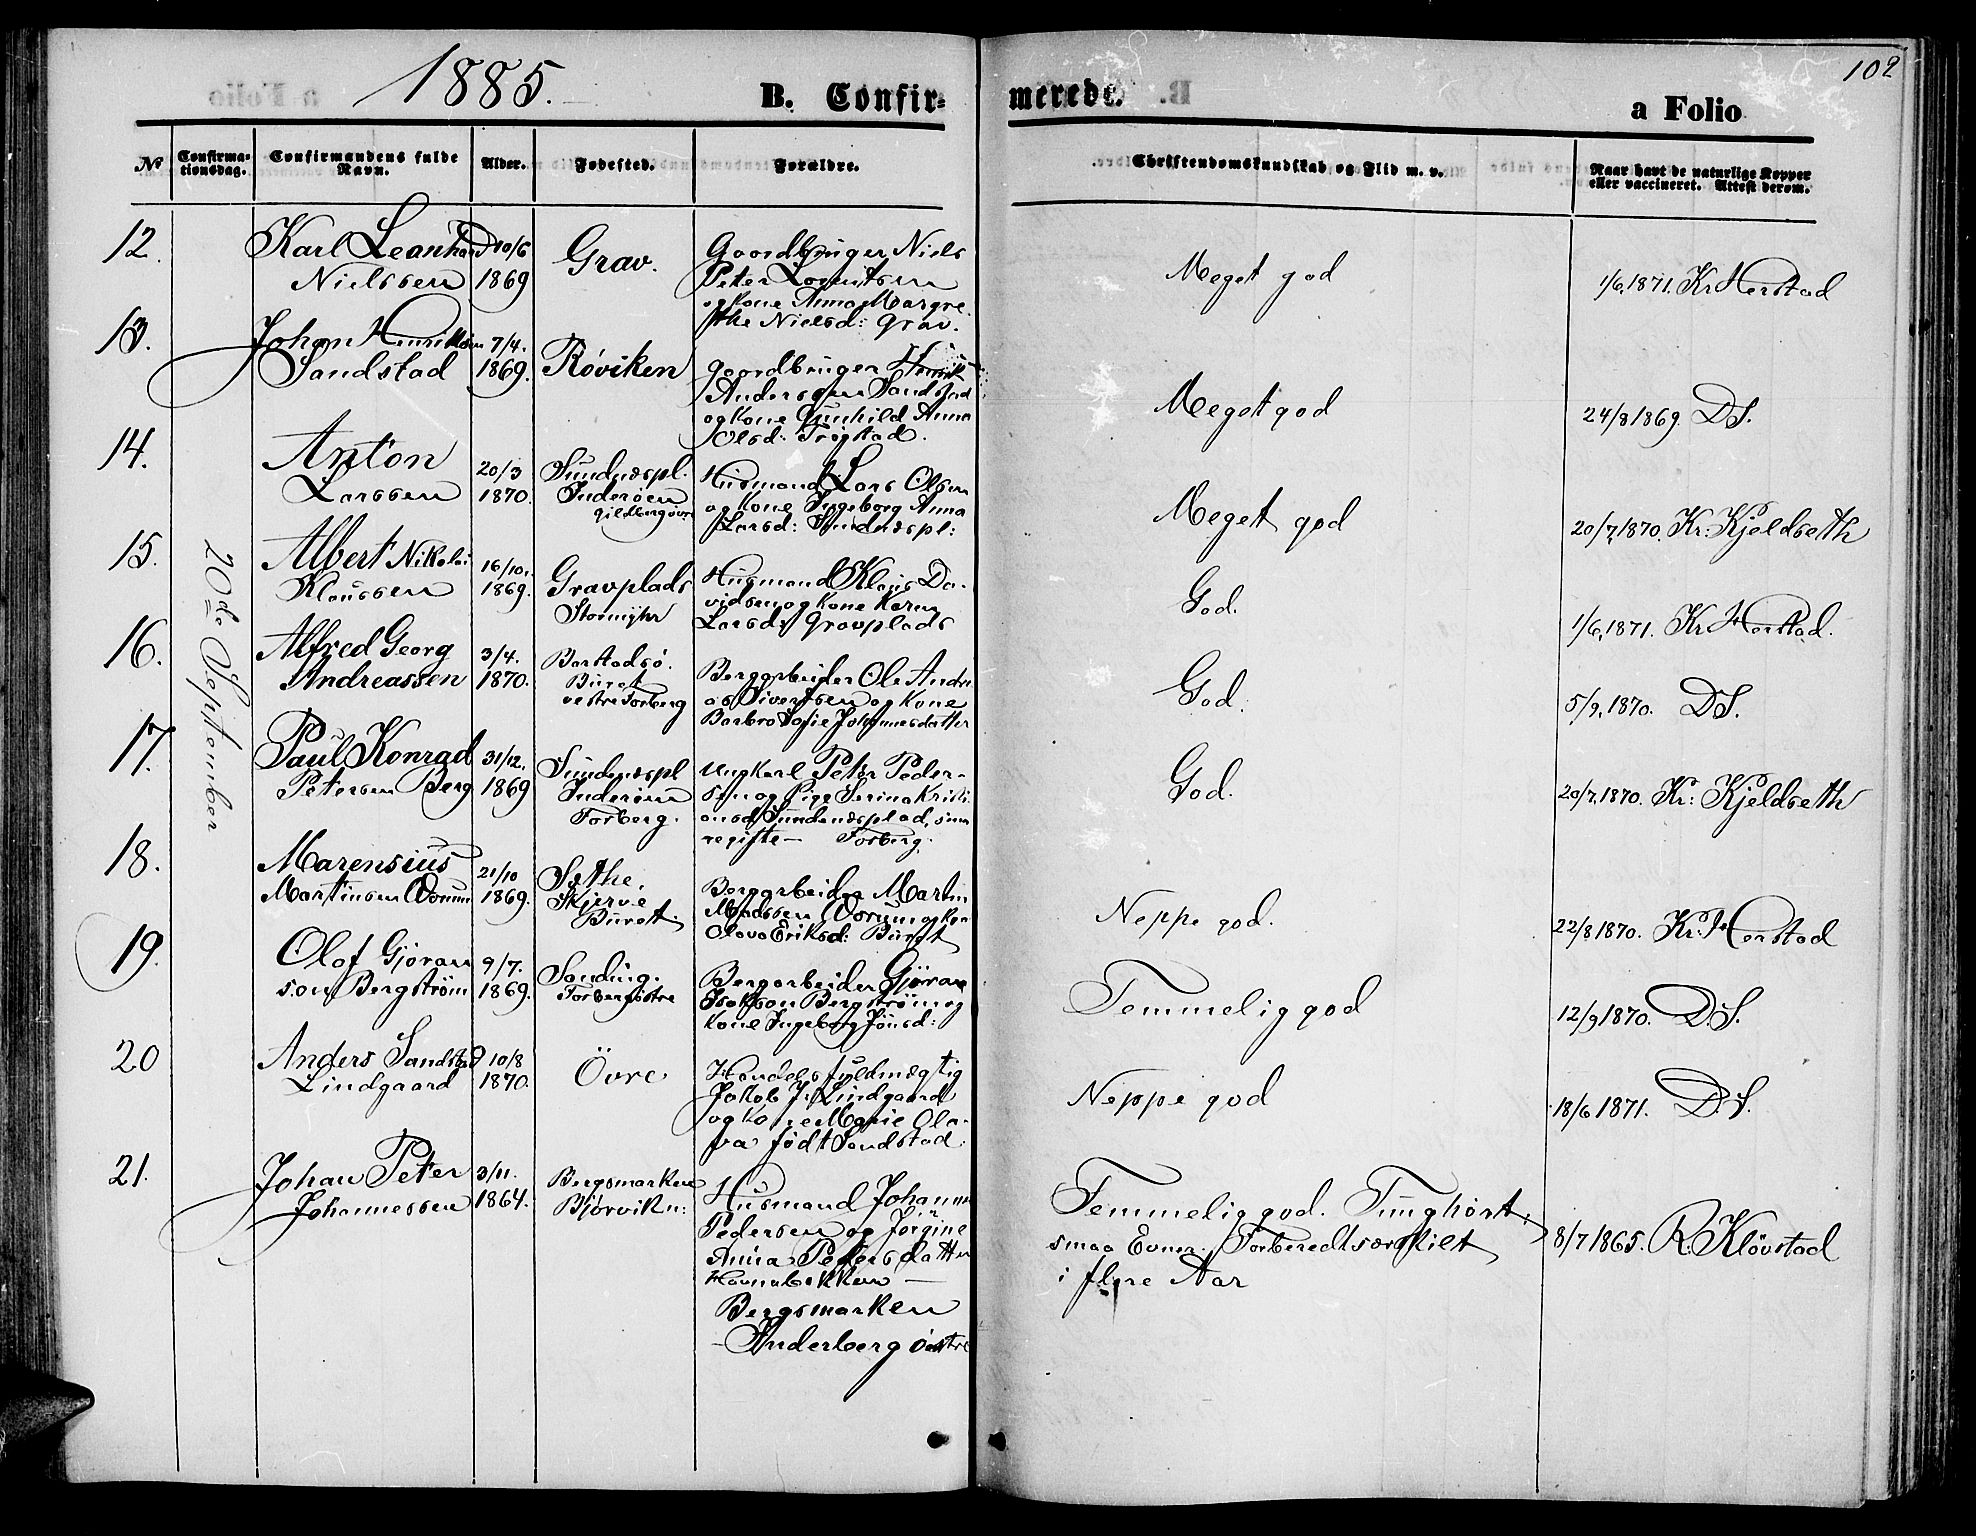 1885.
B. Confir-
merede.
a Folio
102
No
Confirma-
tionsdag.
Confirmandens fulde
Navn.
Alder.
Fødested.
Forældre.
Christendomskundskab og Flid m. v.
Naar havt de naturlige Kopper
eller vaccineret. Attest derom.
20de September
12.
Karl Leonhard
Nielssen
10/6
1869
Grav.
Gaardbruger Niels
Peter
og kone Anna Margre
the Nielsd: Grav.
Meget god
1/6, 1871. Kr. Herstad
13.
Johan Henriksen
Sandstad
7/4.
1869.
Røviken
gaardbruger Henrik
Anderssen Sandstad
og kone Gunhild Anna
Olsd: Trøgstad.
Meget god
24/8 1869. D.S.
14.
Anton
Larssen
20/3
1870.
Sundnæspl.
Inderøen
Husmand Lars Olsen
og kone Ingeborg Anna
Larsd: Sundnæspl:
Meget god
20/7, 1870. Kr: Kjeldseth
15.
Albert Nikolai
Klaussen
16/10.
1869.
Gravplads
Husmand Klaus Da-
vidsen og kone Karen
Larsd: Gravplads
God.
1/6, 1871. Kr Herstad.
16.
Alfred Georg
Andreassen
3/4.
1870.
Barstadsø.
Buret
vestre Forberg
Bergarbeider Ole Andre
as Sivertsen og kone
Barbro Sofie Johannesdatter
God.
5/9, 1870. D.S.
17.
Paul Konrad
Petersen Berg
31/12.
1869
Sundnæspl
Inderøen
Forberg.
Ungkarl Peter Peder-
sen og Pige Serina Kristi
ansd, Sundnæsplad,
Forberg.
God.
20/7, 1870. Kr: Kjeldseth
18.
Marensius
Martinsen Worum
21/10
1869.
Sæthe,
Skjerve
Burett.
Bergarbeider Martin
Madssen Worum og kone
Olava Eriksd: Buret
Neppe god.
22/8 1870. Kr. Herstad
19.
Olof Gjøran
son Bergstrøm
9/7.
1869.
Sanding.
Forbergøstre
Bergarbeider Gjøran
Isakson Bergstrøm og
kone Ingeborg Jonsd:
Temmelig god
12/9 1870. D.S.
20
Anders Sandstad
Lindgaard
10/8
1870.
Övre
Handelsfuldmægtig
Jakob J. Lindgaard
og kone Marie Ola-
va født Sandstad.
Neppe god
18/6 1871. D.S.
21.
Johan Peter
Johannessen
3/11.
1864.
Bergsmarken
Bjørviken:
Husmand Johannes
Pedersen og Jørgine
Anna Petersdatter
Havnabakken —
Bergsmarken
Anderberg østre
Temmelig god. Tunghørt.
smaa Evner. Forberedt særskilt
i flere Aar
8/7 1865. R. Kløvstad